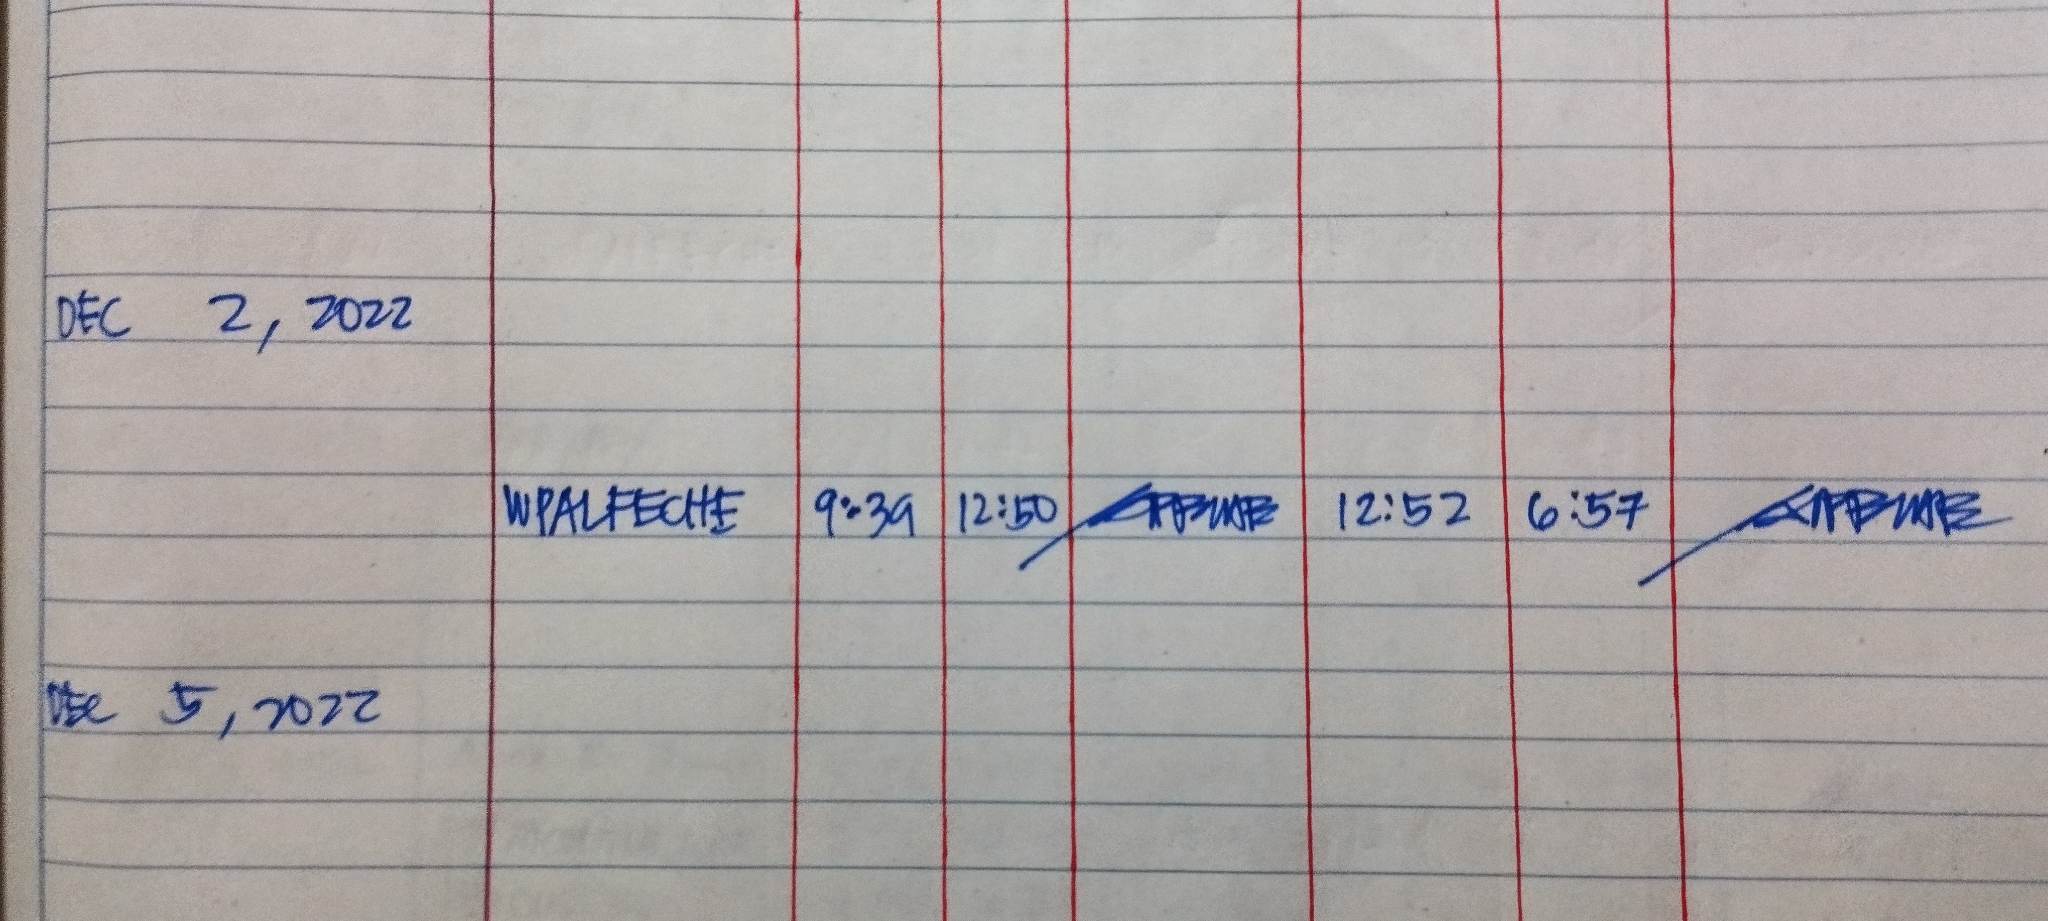 DEC 2, 2022
WPALFECHE 9:39 12:50 12:52 6:57
DEC 5, 2022